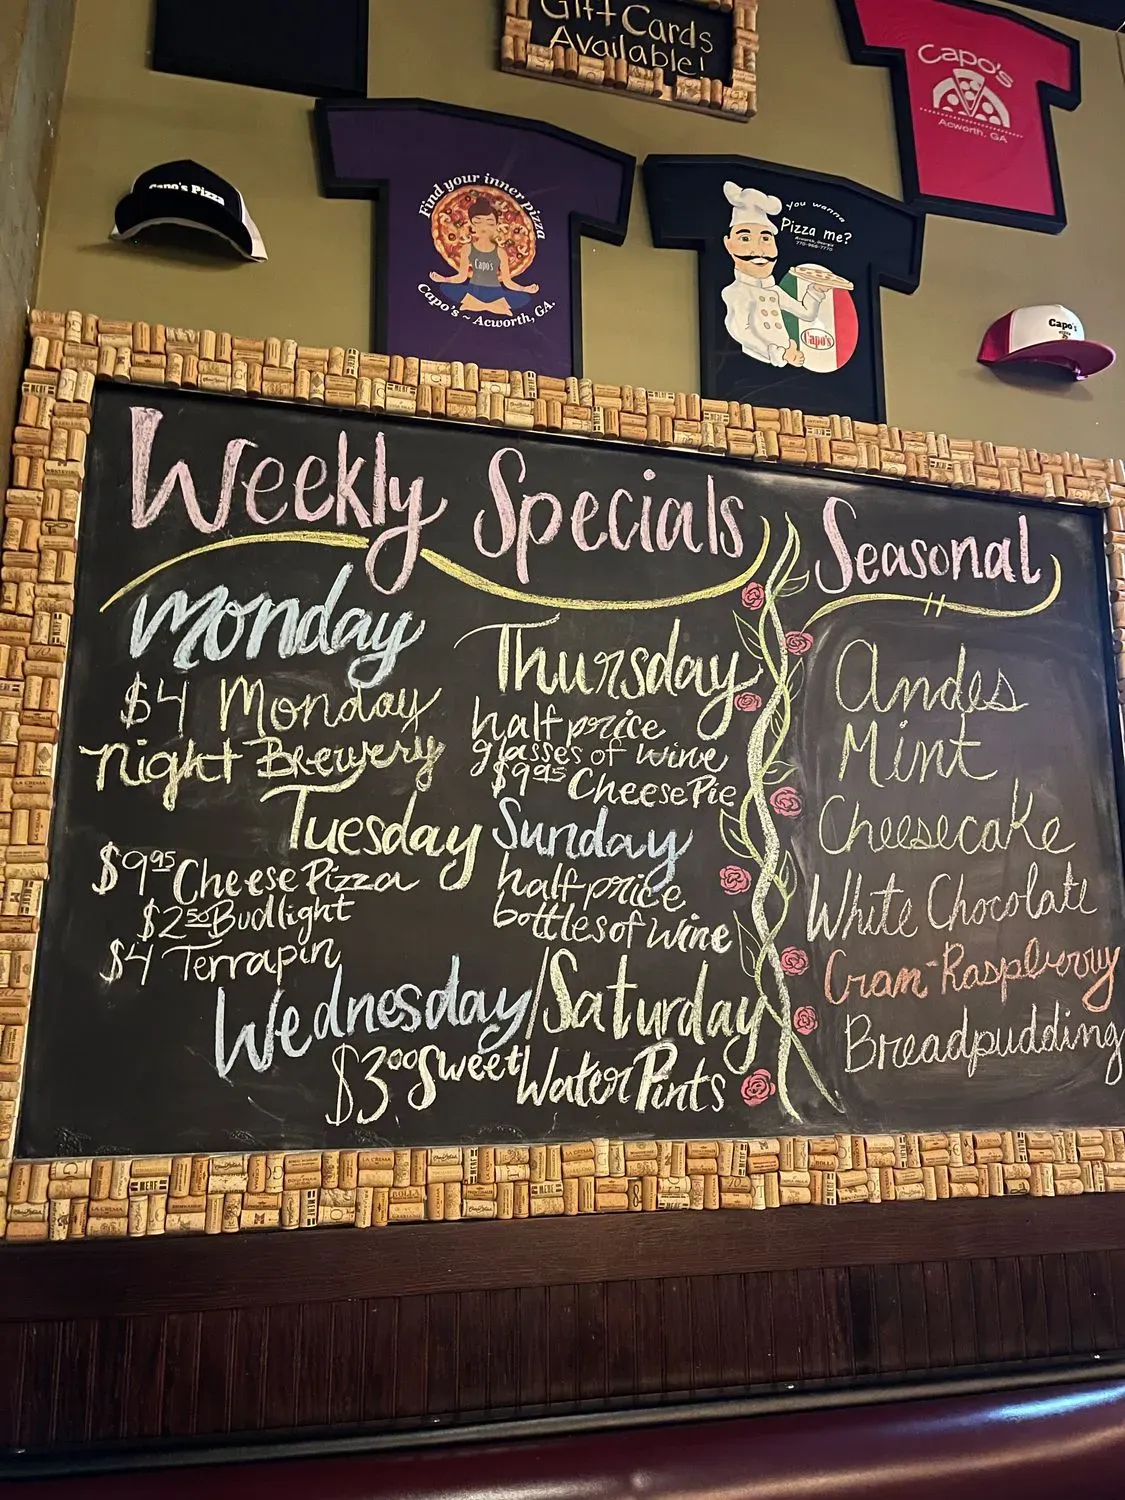 Gift Cards
Available!
Capo's
Acworth, GA
Capo's Pizza
Find your inner pizza
Capo's
Capo's ~ Acworth, GA.
You wanna
Pizza me?
Acworth, Georgia
770-966-7770
Capo's
Capo's
Weekly Specials
Monday
$4 Monday
Night Brewery
Tuesday
$9.95 Cheese Pizza
$2.50 Budlight
$4 Terrapin
Thursday
half price
glasses of wine
$9.95 Cheese Pie
Sunday
half price
bottles of wine
Wednesday/Saturday
$3.00 Sweet Water Pints
Seasonal
Andes
Mint
Cheesecake
White Chocolate
Cran-Raspberry
Breadpudding